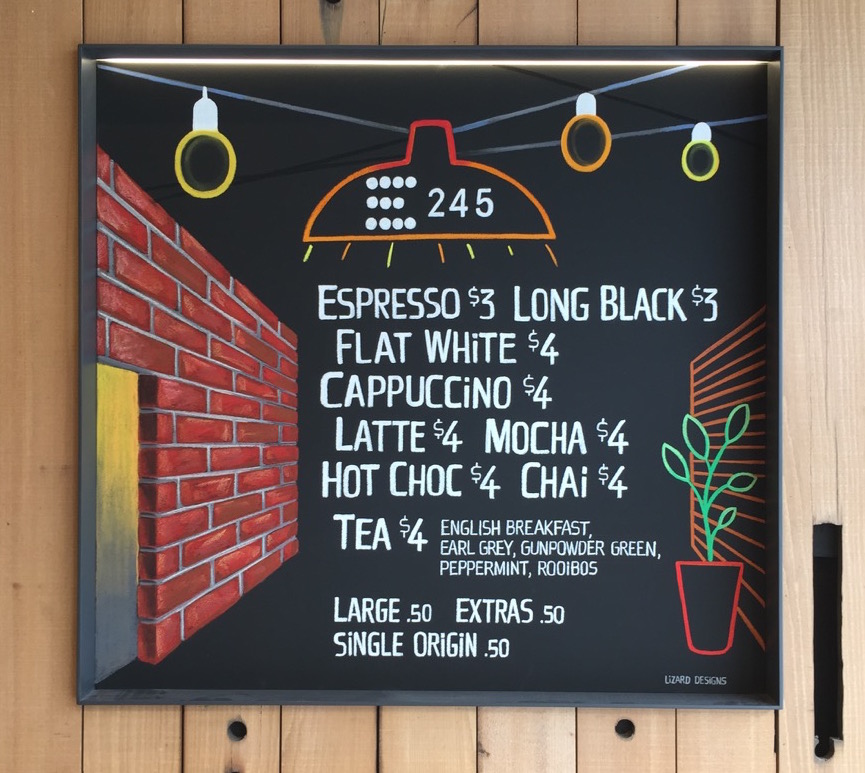 245
ESPRESSO $3 LONG BLACK $3
FLAT WHiTE $4
CAPPUCCiNO $4
LATTE $4 MOCHA $4
HOT CHOC $4 CHAi $4
TEA $4 ENGLISH BREAKFAST,
EARL GREY, GUNPOWDER GREEN,
PEPPERMINT, ROOiBOS
LARGE .50 EXTRAS .50
SiNGLE ORiGiN .50
LiZARD DESiGNS